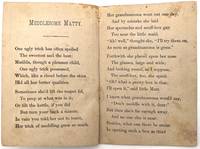 MEDDLESOME MATTY.
One ugly trick has often spoiled
The sweetest and the best;
Matilda, though a pleasant child,
One ugly trick possessed,
Which, like a cloud before the skies,
Hid all her better qualities.
Sometimes she'd lift the teapot lid,
To peep at what was in it;
Or tilt the kettle, if you did
But turn your back a minute.
In vain you told her not to touch,
Her trick of meddling grew so much.
Her grandmamma went out one day,
And by mistake she laid
Her spectacles and snuff-box gay
Too near the little maid.
"Ah! well," thought she, "I'll try them on,
As soon as grandmamma is gone."
Forthwith she placed upon her nose
The glasses, large and wide;
And looking round, as I suppose,
The snuff-box, too, she spied.
"Oh! what a pretty box is that;
I'll open it," said little Matt.
I know what grandmamma would say,
"Don't meddle with it, dear;"
But then she's far enough away,
And no one else is near.
Besides, what can there be amiss
In opening such a box as this?